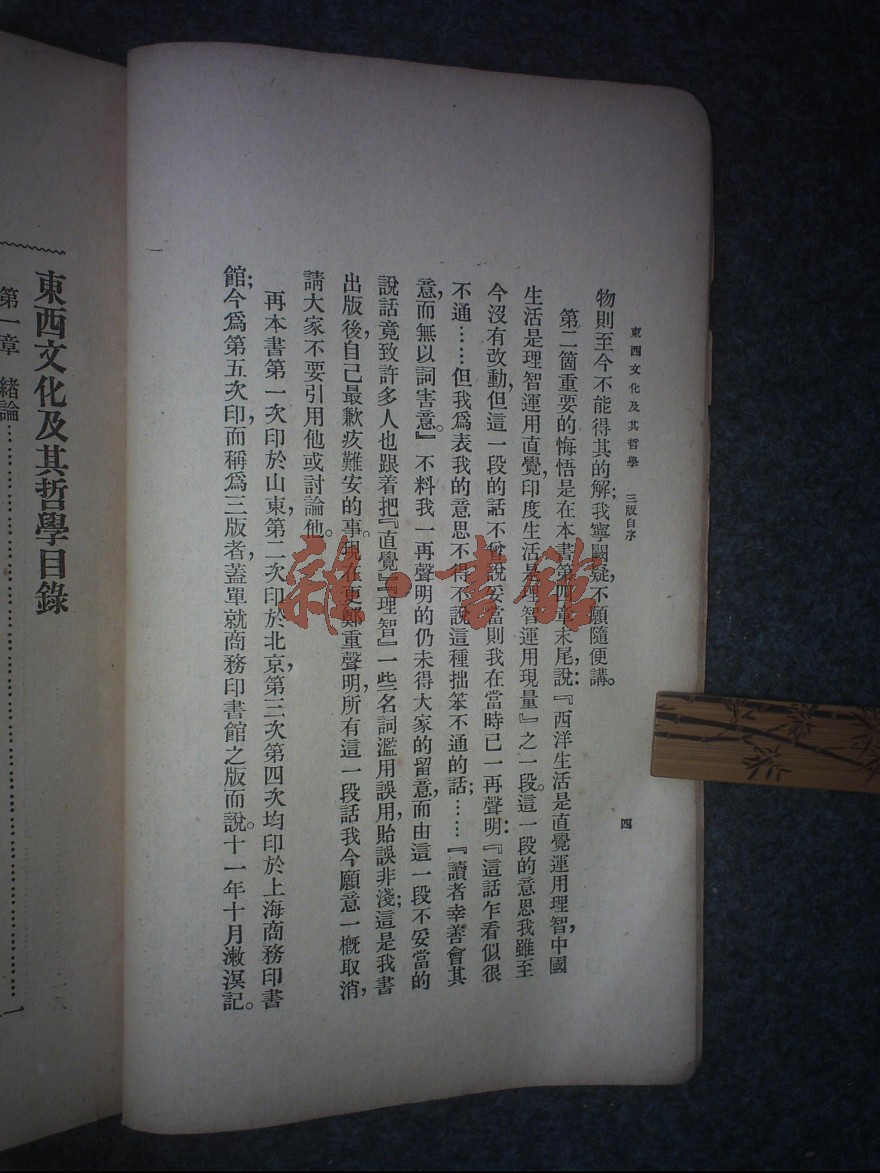 東西文化及其哲學 三版自序
四
物則至今不能得其的解;我寧闕疑,不願隨便講。
第二箇重要的悔悟是在本書第四章末尾,說:『西洋生活是直覺運用理智,中國
生活是理智運用直覺,印度生活是理智運用現量』之一段。這一段的意思我雖至
今沒有改動,但這一段的話不曾說妥當則我在當時已一再聲明:『這話乍看似很
不通……但我爲表我的意思不得不說這種拙笨不通的話;……『讀者幸善會其
意,而無以詞害意。』不料我一再聲明的仍未得大家的留意,而由這一段不妥當的
說話竟致許多人也跟着把『直覺』『理智』一些名詞濫用誤用,貽誤非淺;這是我書
出版後,自己最歉疚難安的事。現在更鄭重聲明,所有這一段話我今願意一槪取消,
請大家不要引用他或討論他。
再本書第一次印於山東,第二次印於北京,第三次第四次均印於上海商務印書
館;今爲第五次印,而稱爲三版者,蓋單就商務印書館之版而說。十一年十月漱溟記。
一
東西文化及其哲學目錄
第一章 緒論……………………………………一
雜·書館